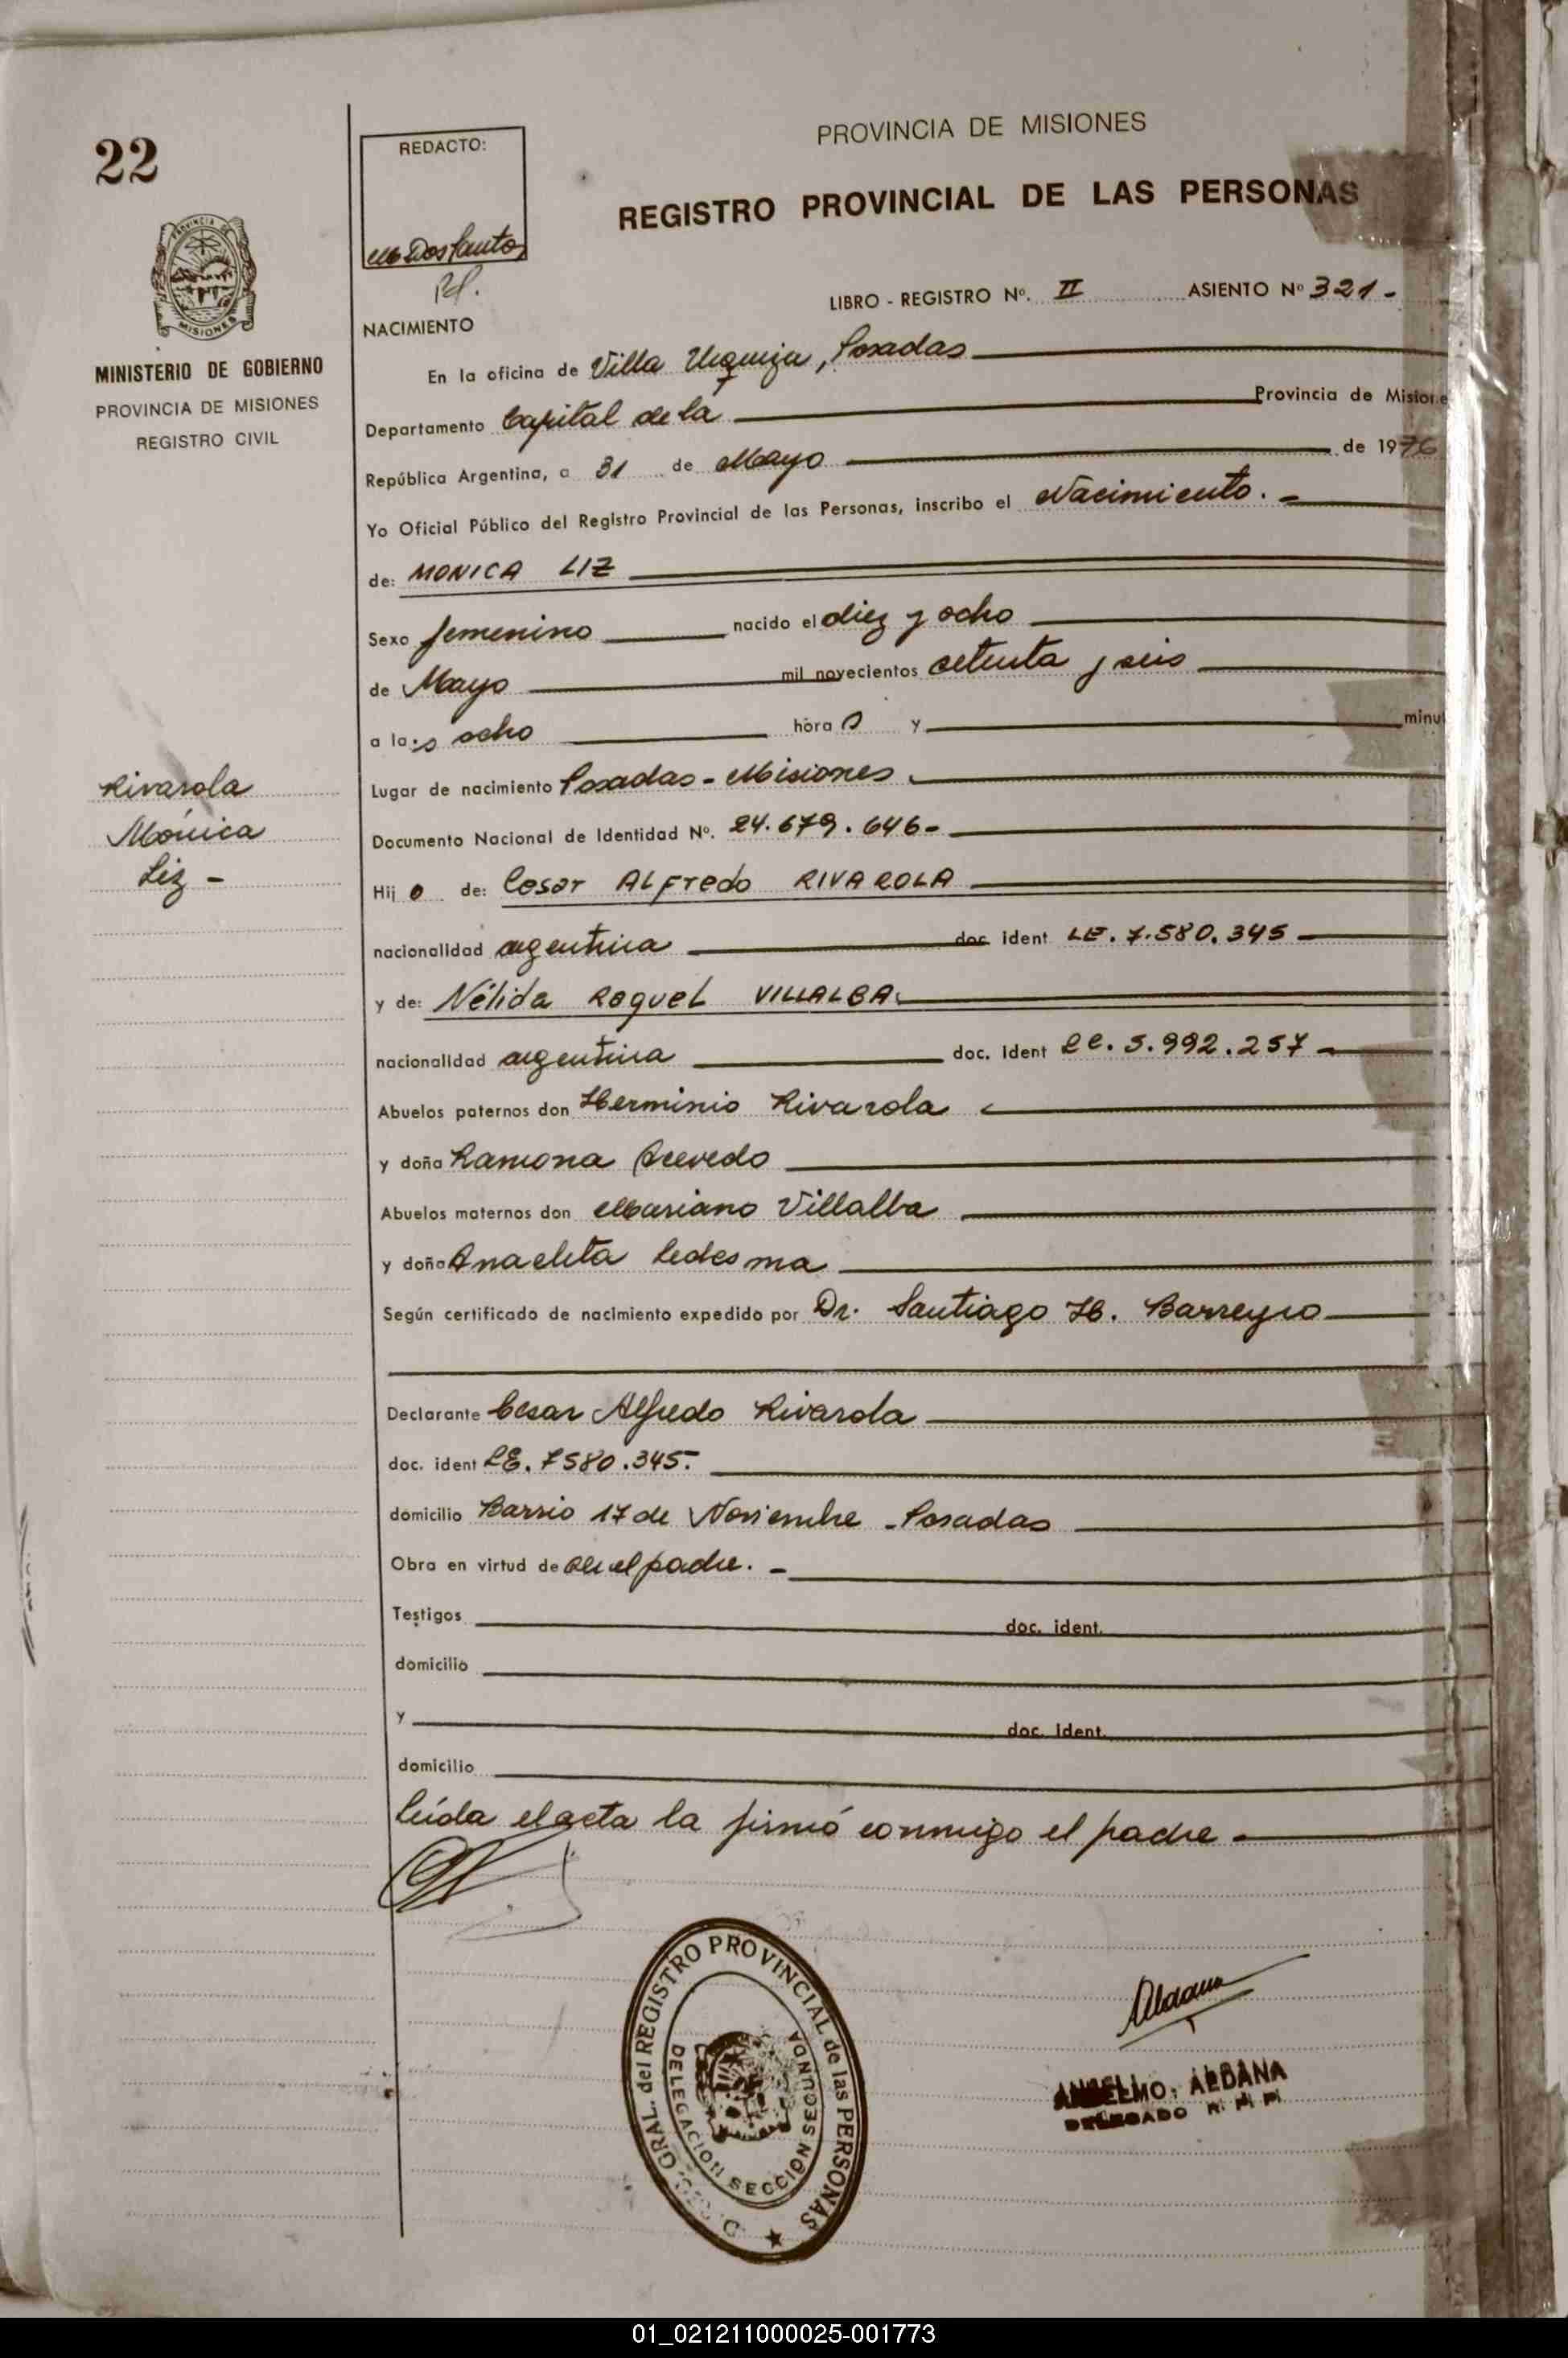 22
REDACTO:
PROVINCIA DE MISIONES
REGISTRO PROVINCIAL DE LAS PERSONAS
LIBRO - REGISTRO Nº. II ASIENTO Nº 321-
PROVINCIA DE
MISIONES
MINISTERIO DE GOBIERNO
PROVINCIA DE MISIONES
REGISTRO CIVIL
NACIMIENTO
En la oficina de Villa Urquiza, Posadas
Departamento Capital de la Provincia de Misione
República Argentina, a 31 de Mayo de 1976
Yo Oficial Público del Registro Provincial de las Personas, inscribo el Nacimiento. -
de: MONICA LIZ
Sexo femenino nacido el diez y ocho
de Mayo mil novecientos setenta y seis
a las ocho horas y minu
Lugar de nacimiento Posadas - Misiones
Documento Nacional de Identidad Nº. 24.679.646-
Rivarola
Mónica
Liz -
Hijo de: Cesar ALFredo RIVAROLA
nacionalidad argentina doc. ident LE. 7.580.345
y de: Nélida Raquel VILLALBA
nacionalidad argentina doc. ident LC. 5.992.257
Abuelos paternos don Herminio Rivarola
y doña Ramona Acevedo
Abuelos maternos don Mariano Villalba
y doña Anacleta Ledesma
Según certificado de nacimiento expedido por Dr. Santiago H. Barreyro
Declarante Cesar Alfredo Rivarola
doc. ident LE. 7580.345.-
domicilio Barrio 17 de Noviembre - Posadas
Obra en virtud de ser el padre. -
Testigos doc. ident.
domicilio
y doc. ident.
domicilio
Leída el acta la firmó conmigo el padre -
Aldana
ANSELMO ALDANA
DELEGADO R. P. P.
GRAL. del REGISTRO PROVINCIAL de las PERSONAS
DELEGACION SECCION SEGUNDA
01_021211000025-001773